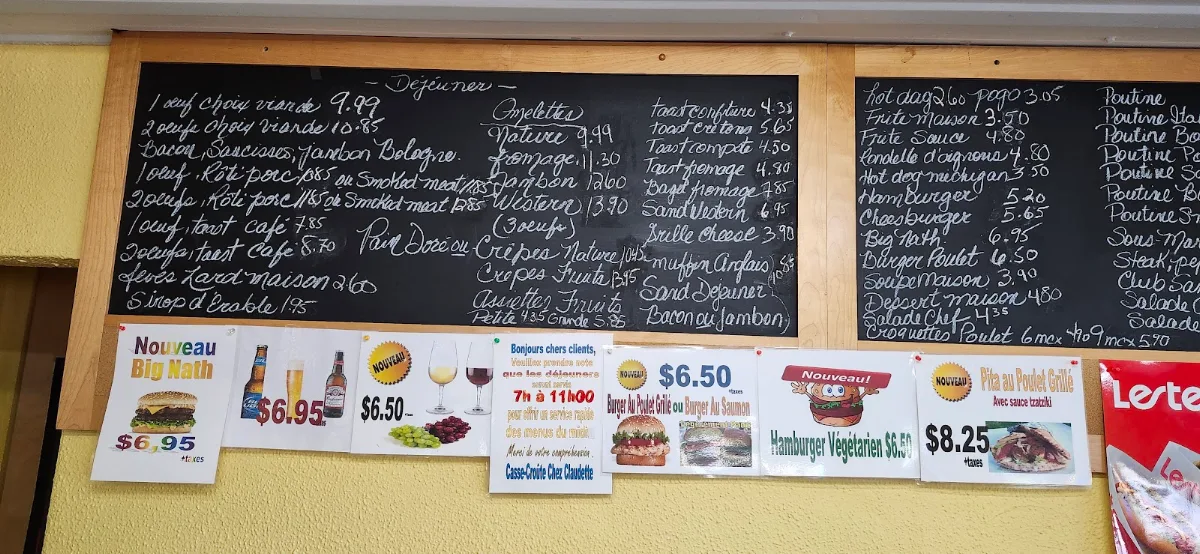 - Déjeuner -
1 oeuf choix viande 9.99
2 oeufs choix viande 10.85
Bacon, Saucisses, Jambon Bologne.
1 oeuf, Rôti porc 10.85 ou Smoked meat 11.85
2 oeufs, Rôti porc 11.85 ou Smoked meat 12.85
1 oeuf, toast café 7.85
2 oeufs, toast café 8.70
Fèves Lard maison 2.60
Sirop d'Érable 1.95
Pain Doré ou
Omelettes
Nature 9.99
fromage 11.30
Jambon 12.60
Western 13.90
(3 oeufs)
Crêpes Nature 10.45
Crêpes Fruits 13.95
Assiettes Fruits
Petite 4.35 Grande 5.25
Toast confiture 4.35
toast cretons 5.65
Toast compote 4.50
Toast fromage 4.80
Bagel fromage 7.85
Sand Western 6.95
Grille cheese 3.90
muffin Anglais
Sand Dejeuner
Bacon ou Jambon
hot dog 2.60 pogo 3.05
Frite maison 3.50
Frite Sauce 4.80
Rondelle d'oignons 4.80
Hot dog michigan 3.50
Hamburger 5.20
Cheesburger 5.65
Big Nath 6.95
Burger Poulet 6.50
Soupe Maison 3.90
Dessert maison 4.80
Salade Chef 4.35
Croquettes Poulet 6 mcx 4.70 9 mcx 5.90
Poutine
Poutine Ita
Poutine
Poutine
Poutine
Poutine
Poutine
Sous-Ma
Steak,
Club Sa
Salade
Salade
Nouveau
Big Nath
$6,95
+taxes
$6.95
taxes
NOUVEAU
$6.50
Bonjours chers clients,
Veuillez prendre note
que les déjeuners
seront servis
7h à 11h00
pour offrir un service rapide
des menus du midi.
Merci de votre compréhension.
Casse-Croûte Chez Claudette
NOUVEAU
$6.50
+taxes
Burger Au Poulet Grillé ou Burger Au Saumon
Nouveau!
Hamburger Végétarien $6.50
NOUVEAU
Pita au Poulet Grillé
Avec sauce tzatziki
$8.25
+taxes
Leste
Le